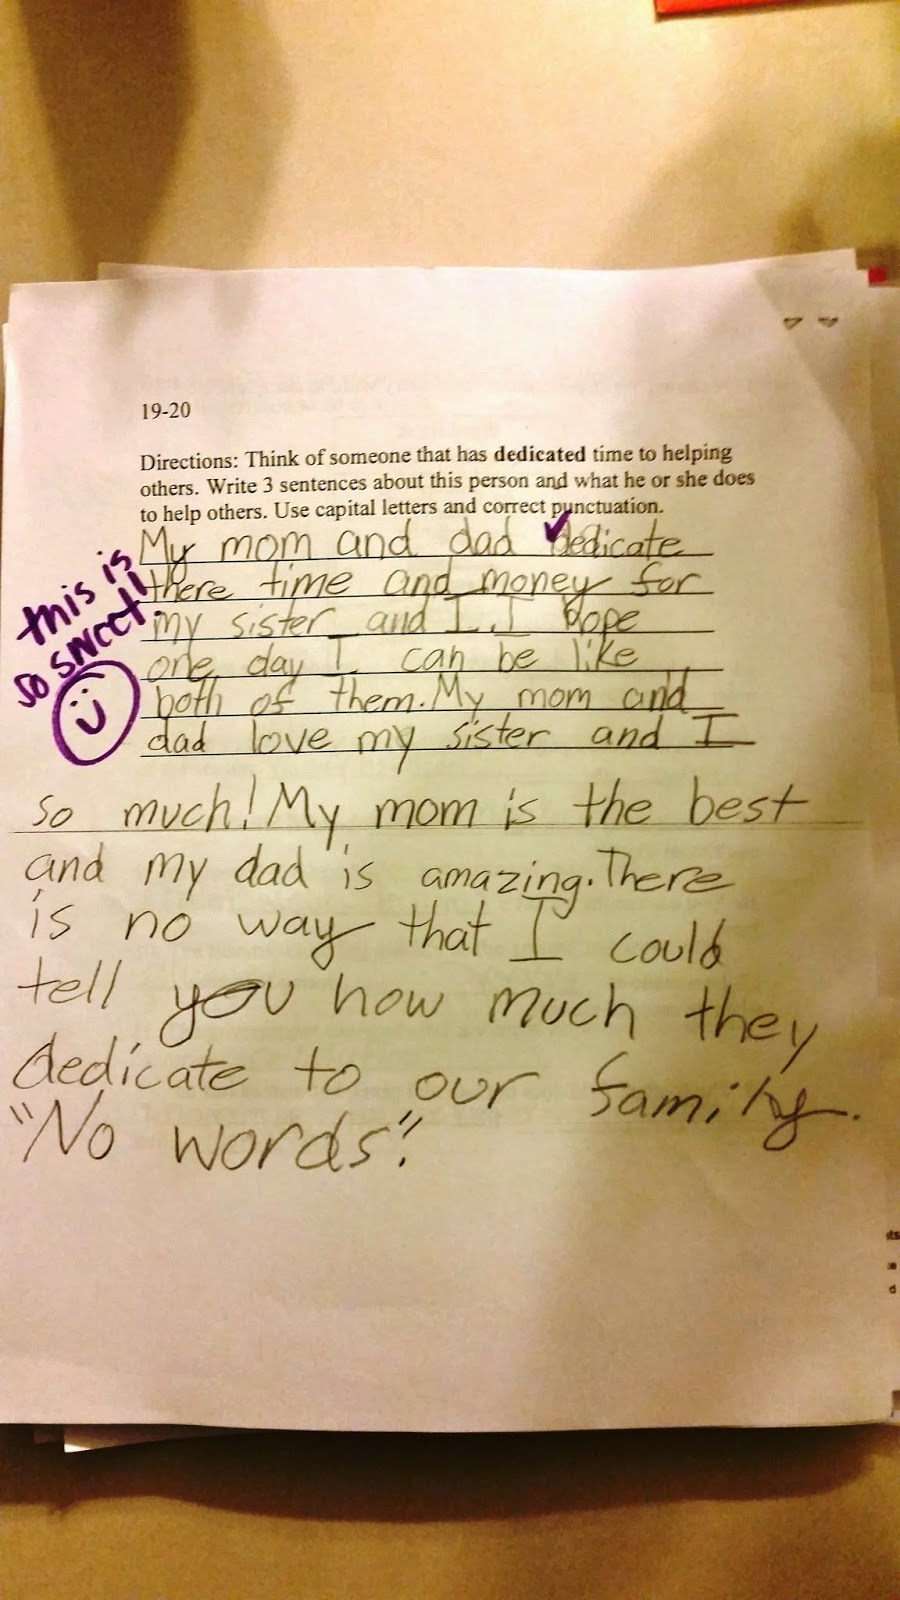 19-20
Directions: Think of someone that has dedicated time to helping
others. Write 3 sentences about this person and what he or she does
to help others. Use capital letters and correct punctuation.
My mom and dad dedicate
there time and money for
my sister and I. I hope
one day I can be like
both of them. My mom and
dad love my sister and I
so much! My mom is the best
and my dad is amazing. There
is no way that I could
tell you how much they
dedicate to our family.
"No words".
this is
so sweet!